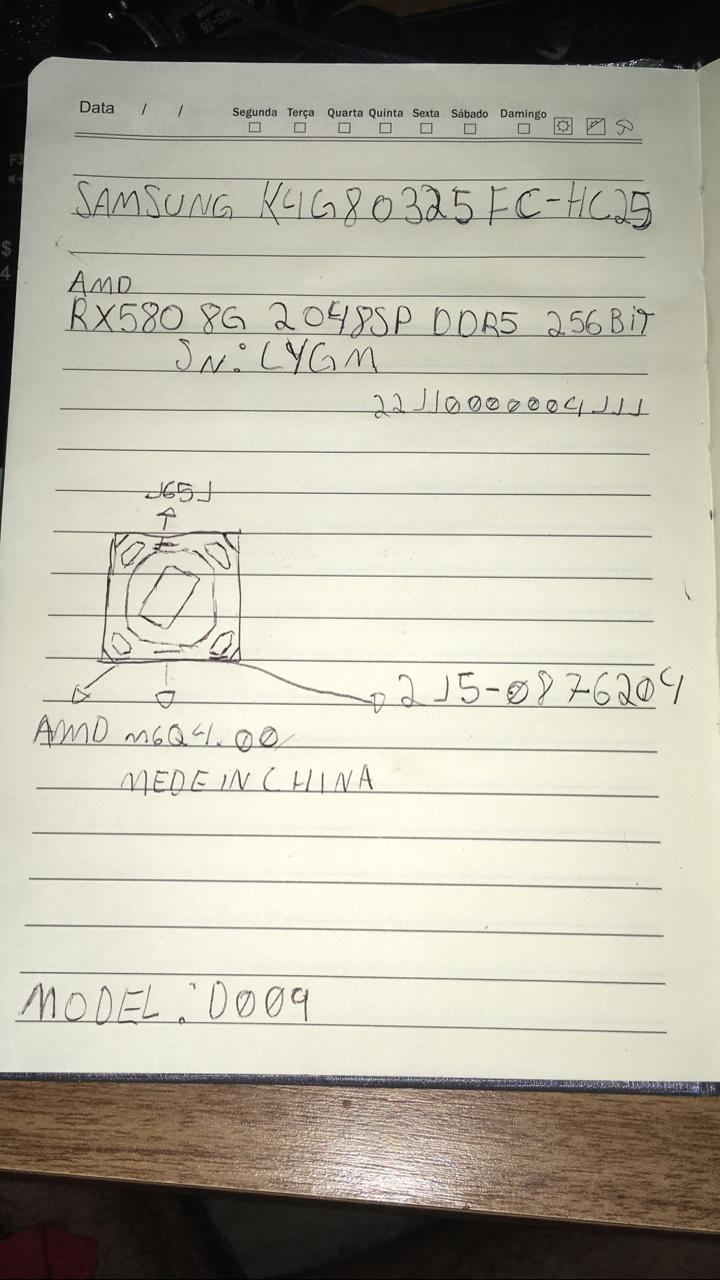 Data / /
Segunda Terça Quarta Quinta Sexta Sábado Damingo
SAMSUNG K4G80325FC-HC25
AMD
RX580 8G 2048SP DDR5 256BiT
SN: LYGM
22J10000004JJJ
J65J
2J5-0876204
AMD M6Q4.00
MEDE IN CHINA
MODEL: D009